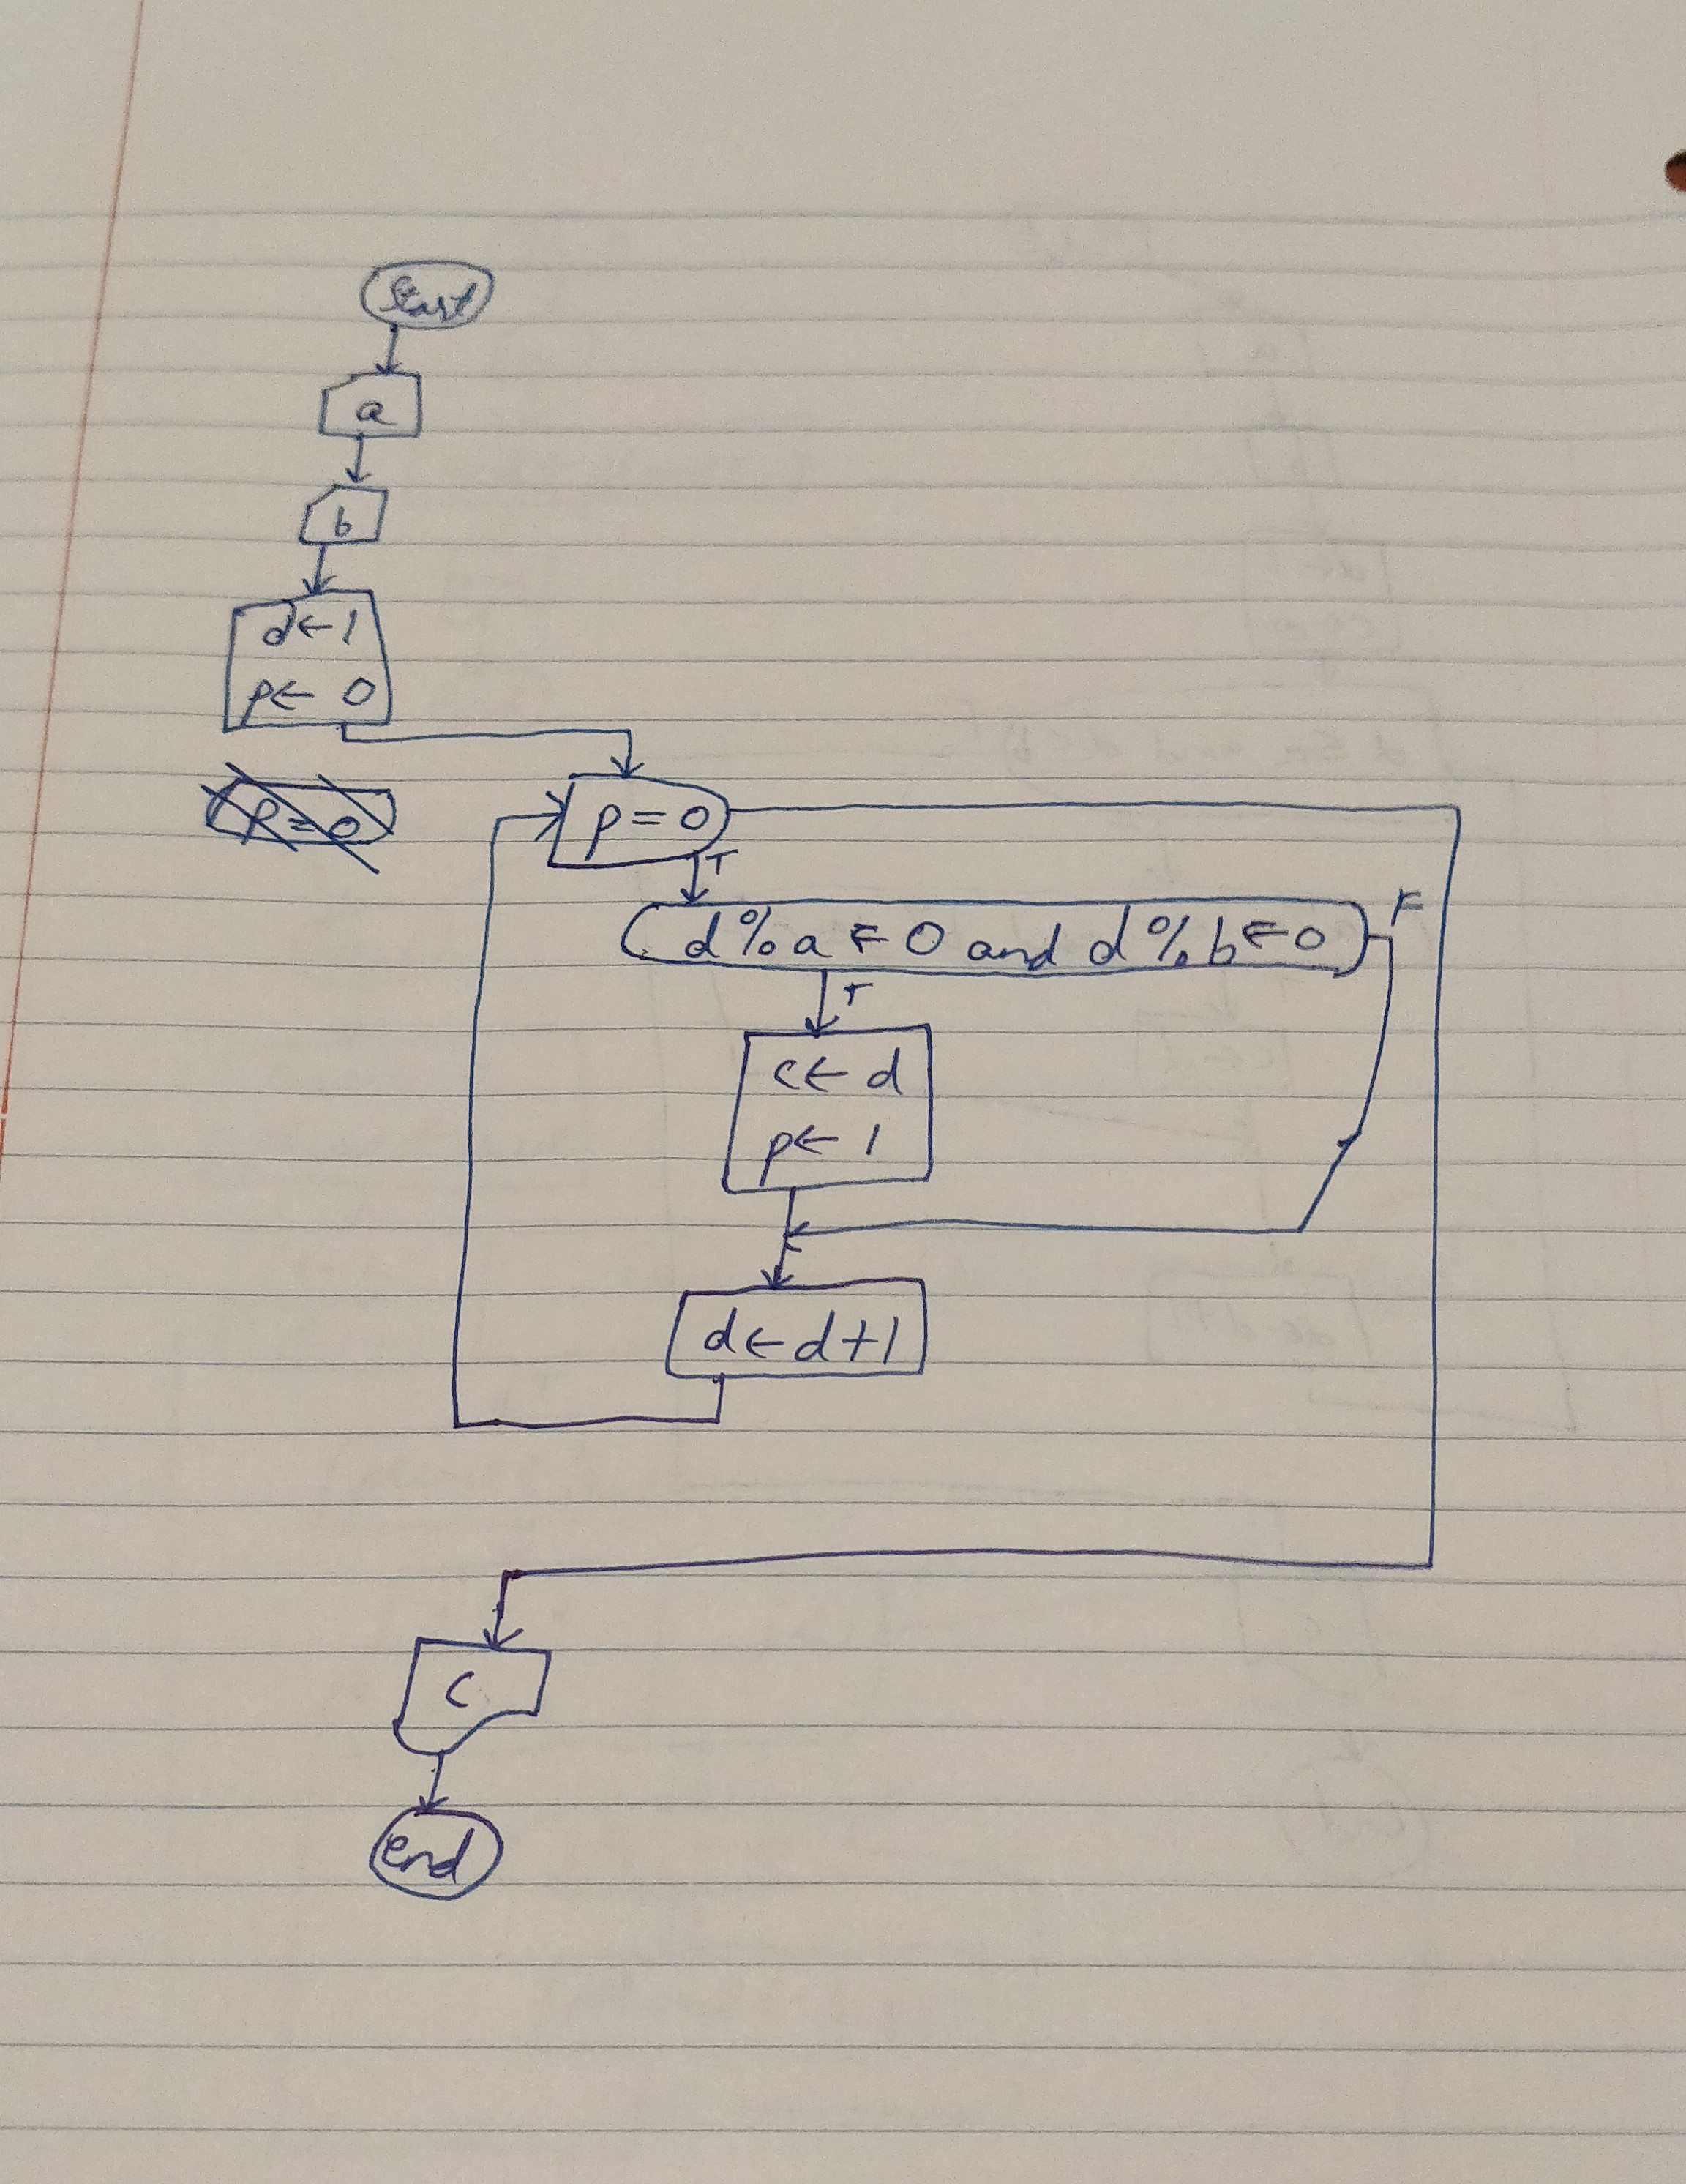 Start
a
b
d←1
p← 0
p=0
p=0
T
d%a ←0 and d%b←0
F
T
c← d
p← 1
d←d+1
c
end